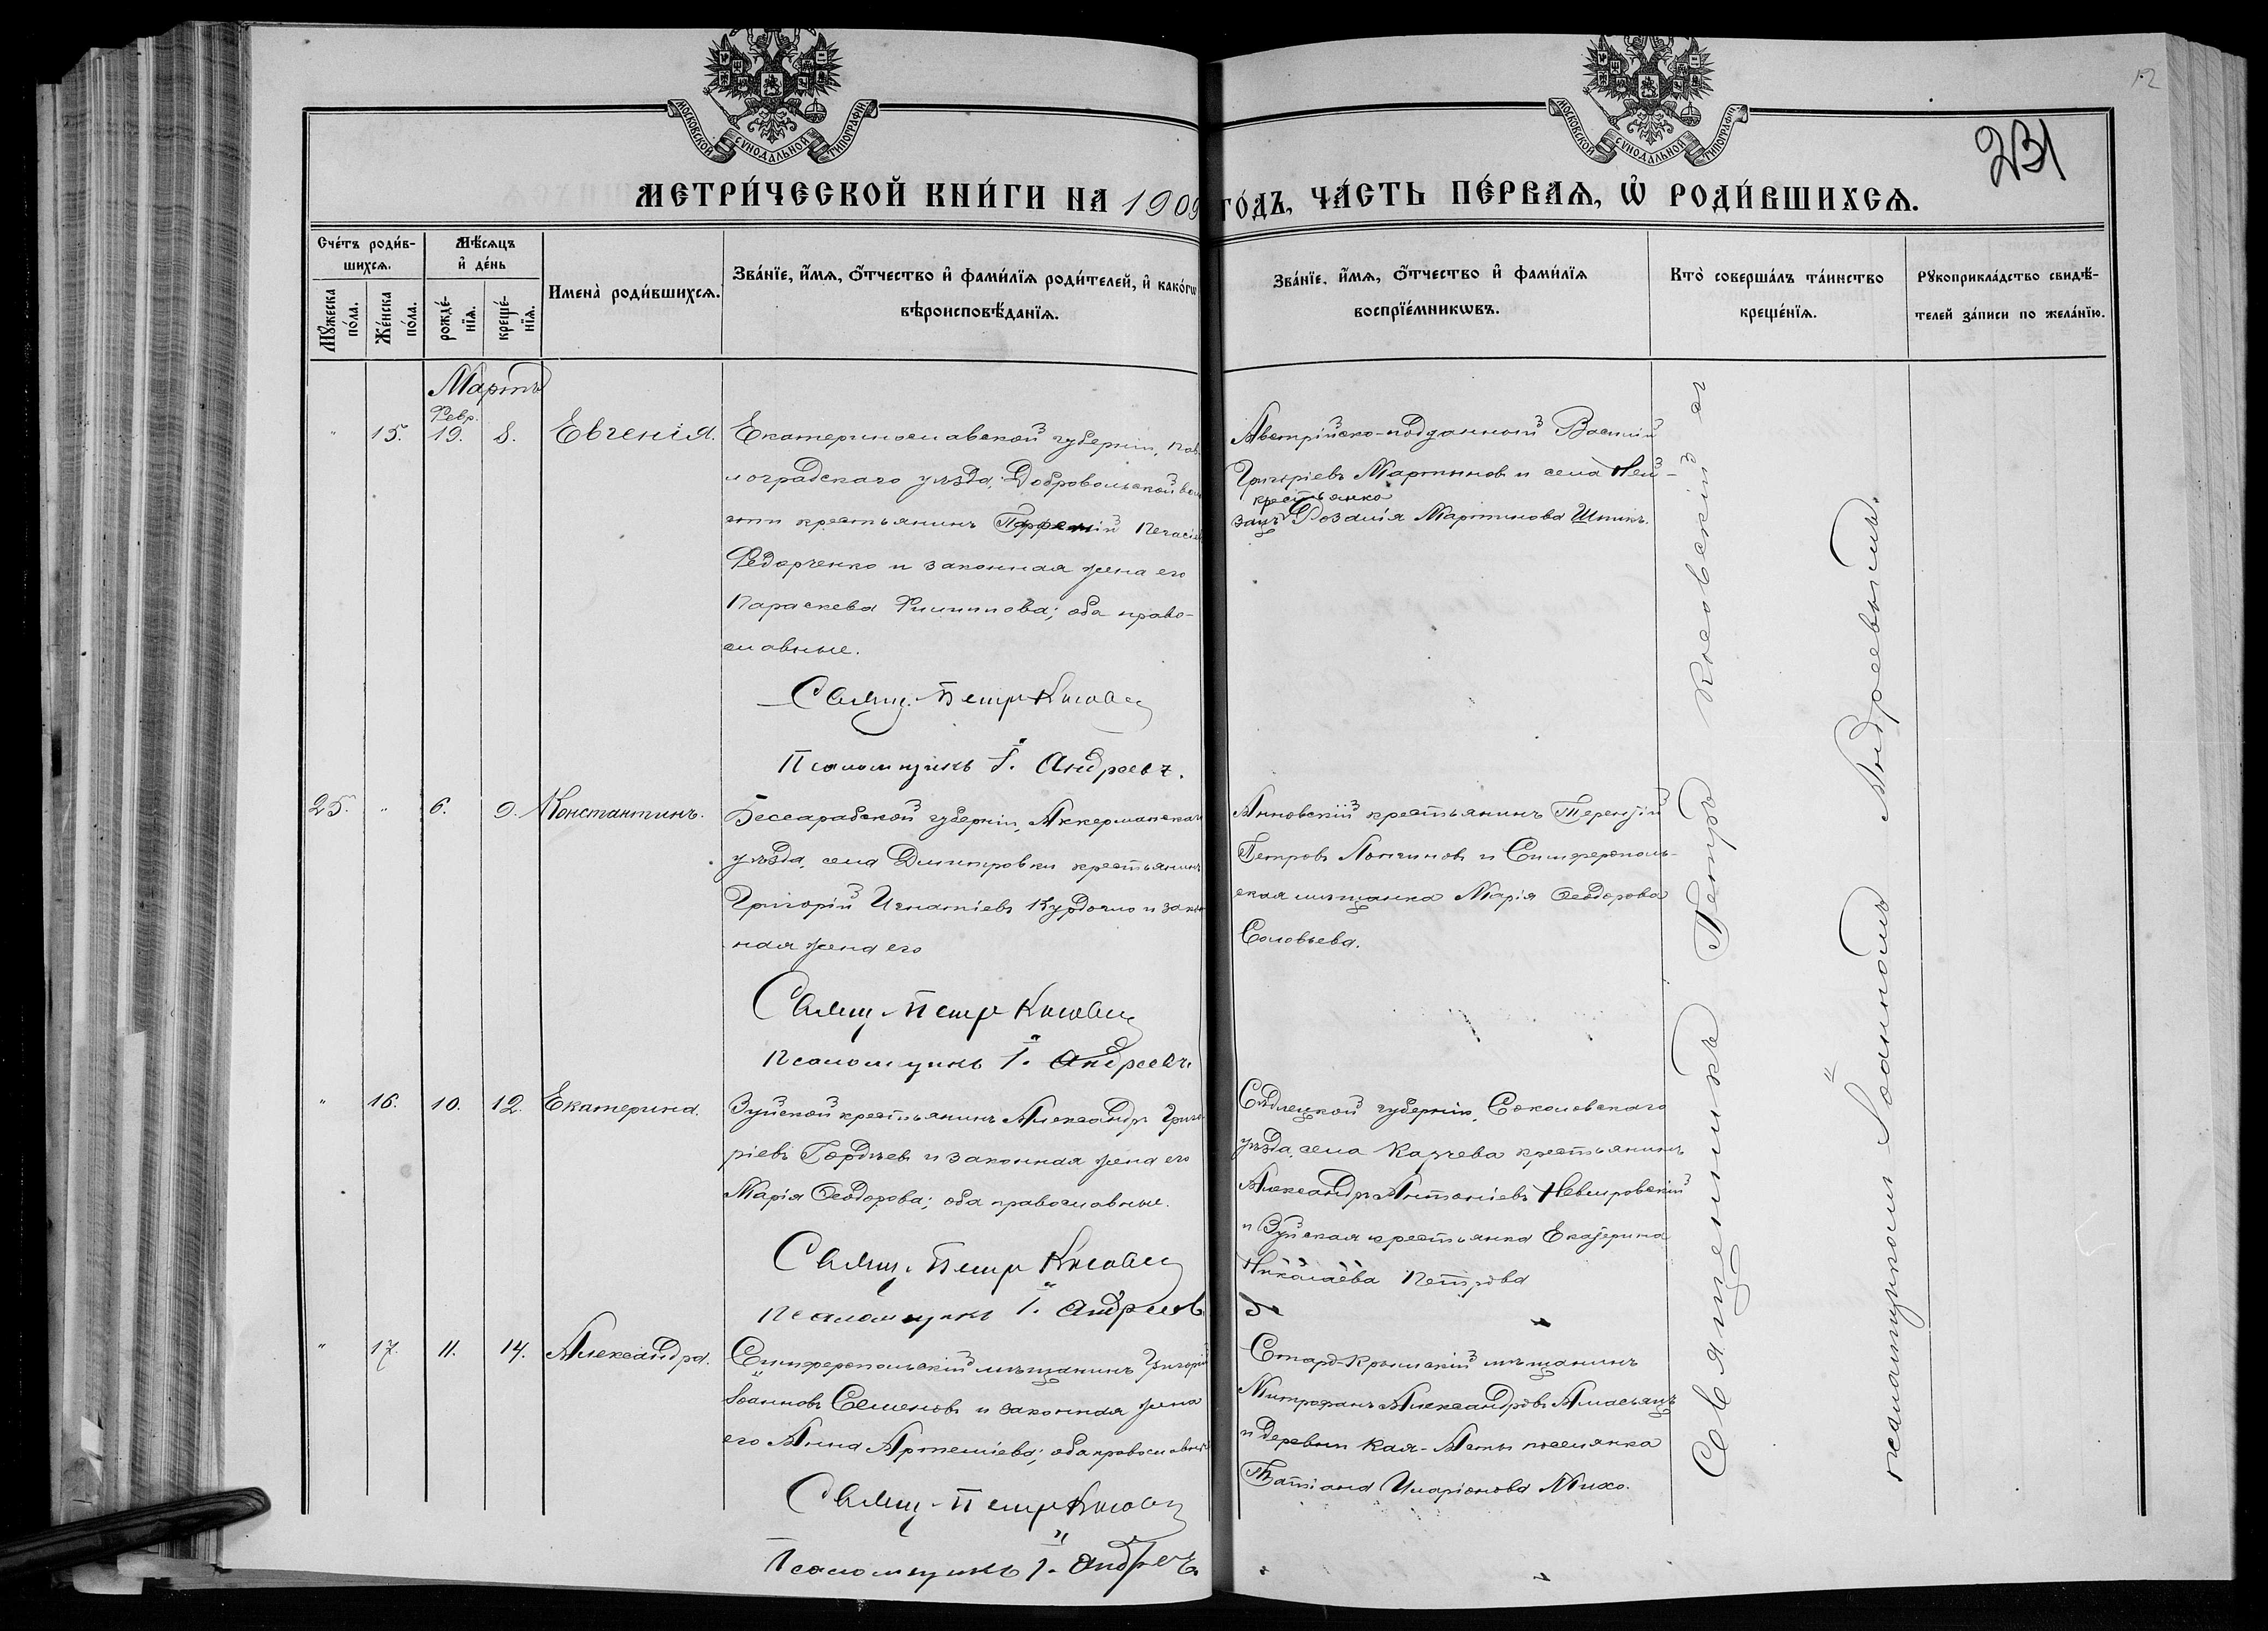 12
231
МОСКОВСКОЙ СУНОДАЛЬНОЙ ТИПОГРАФІИ
МОСКОВСКОЙ СУНОДАЛЬНОЙ ТИПОГРАФІИ
МЕТРИ́ЧЕСКОЙ КНИ́ГИ НА 1909 ГО́ДЪ, ЧА́СТЬ ПЕ́РВАѦ, Ѡ҆ РОДИ́ВШИХСѦ.
Сче́тъ роди́в-
шихсѧ.
Мꙋжеска по́ла.
Же́нска по́ла.
Мѣ́сѧцъ
и҆ де́нь
рожде́-
нїѧ.
креще́-
нїѧ.
И҆мена̀ роди́вшихсѧ.
Зва́нїе, и҆́мѧ, ѻ҆́тчество и҆ фами́лїѧ роди́телей, и҆ како́гѡ
вѣроисповѣ́данїѧ.
Зва́нїе, и҆́мѧ, ѻ҆́тчество и҆ фами́лїѧ
воспрїе́мникѡвъ.
Кто̀ соверша́лъ та́инство
креще́нїѧ.
Рꙋкоприкла́дство свидѣ́-
телей за́писи по жела́нїю.
Мартъ
Февр.
" 15. 19. 8. Евгенія.
Екатеринославской губерніи, Пав-
лоградскаго уѣзда, Добровольской вол
сти крестьянинъ Парфеній
Федорченко и законная жена его
Параскева Филиппова; оба право-
славные.
Свящ. Петръ Косовск
Псаломщикъ І. Андреевъ.
Австрійско-подданный Василій
Григоріевъ Мартынов и села Ней-
крестьянка
зацъ Розалія Мартинова
25. " 6. 9. Константинъ.
Бессарабской губерніи, Аккерманскаго
уѣзда, села Димитровки крестьянинъ
Григорій Игнатіевъ Курдогло и закон
ная жена его
Свящ. Петръ Косовск
Псаломщикъ І. Андреевъ
Анновскій крестьянинъ Терентій
Петровъ Логиновъ и Симферополь-
ская мѣщанка Марія Ѳеодорова
Соловьева.
" 16. 10. 12. Екатерина.
Зуйской крестьянинъ Александръ Григо
ріевъ Гордѣевъ и законная жена его
Марія Ѳеодорова; оба православные.
Свящ. Петръ Косовск
Псаломщикъ І. Андреевъ
Сѣдлецкой губерніи, Соколовскаго
уѣзда, села Карчева крестьянинъ
Александръ Антоніевъ Невмировскій
и Зуйская крестьянка Екатерина
Николаева Петрова
" 17. 11. 14. Александра.
Симферопольскій мѣщанинъ Григорій
Іоанновъ Семеновъ и законная жена
его Анна Артеміева; оба православные
Свящ. Петръ Косовск
Псаломщикъ І. Андреевъ
Старо-Крымскій мѣщанинъ
Митрофанъ Александровъ Алмасьянцъ
и деревни Кая-Асты поселянка
Татіана Иларіонова Михо.
Священникъ Петръ Косовскій съ
псаломщикомъ Іоанномъ Андреевымъ.